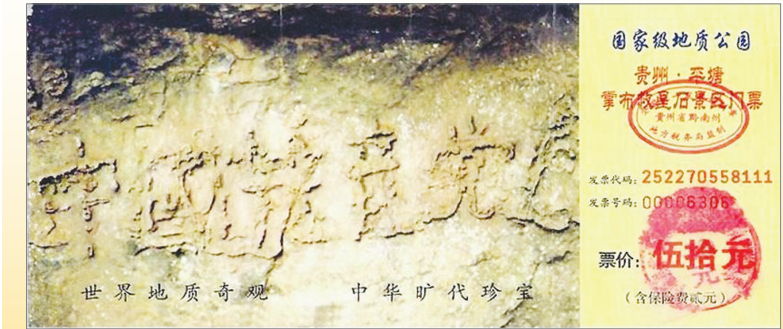 中國共産党亡
世界地质奇观 中华旷代珍宝
国家级地质公园
贵州·平塘
掌布救星石景区门票
貴州省黔南州
地方税务局监制
发票代码: 252270558111
发票号码:
票价: 伍拾元
(含保险费贰元)